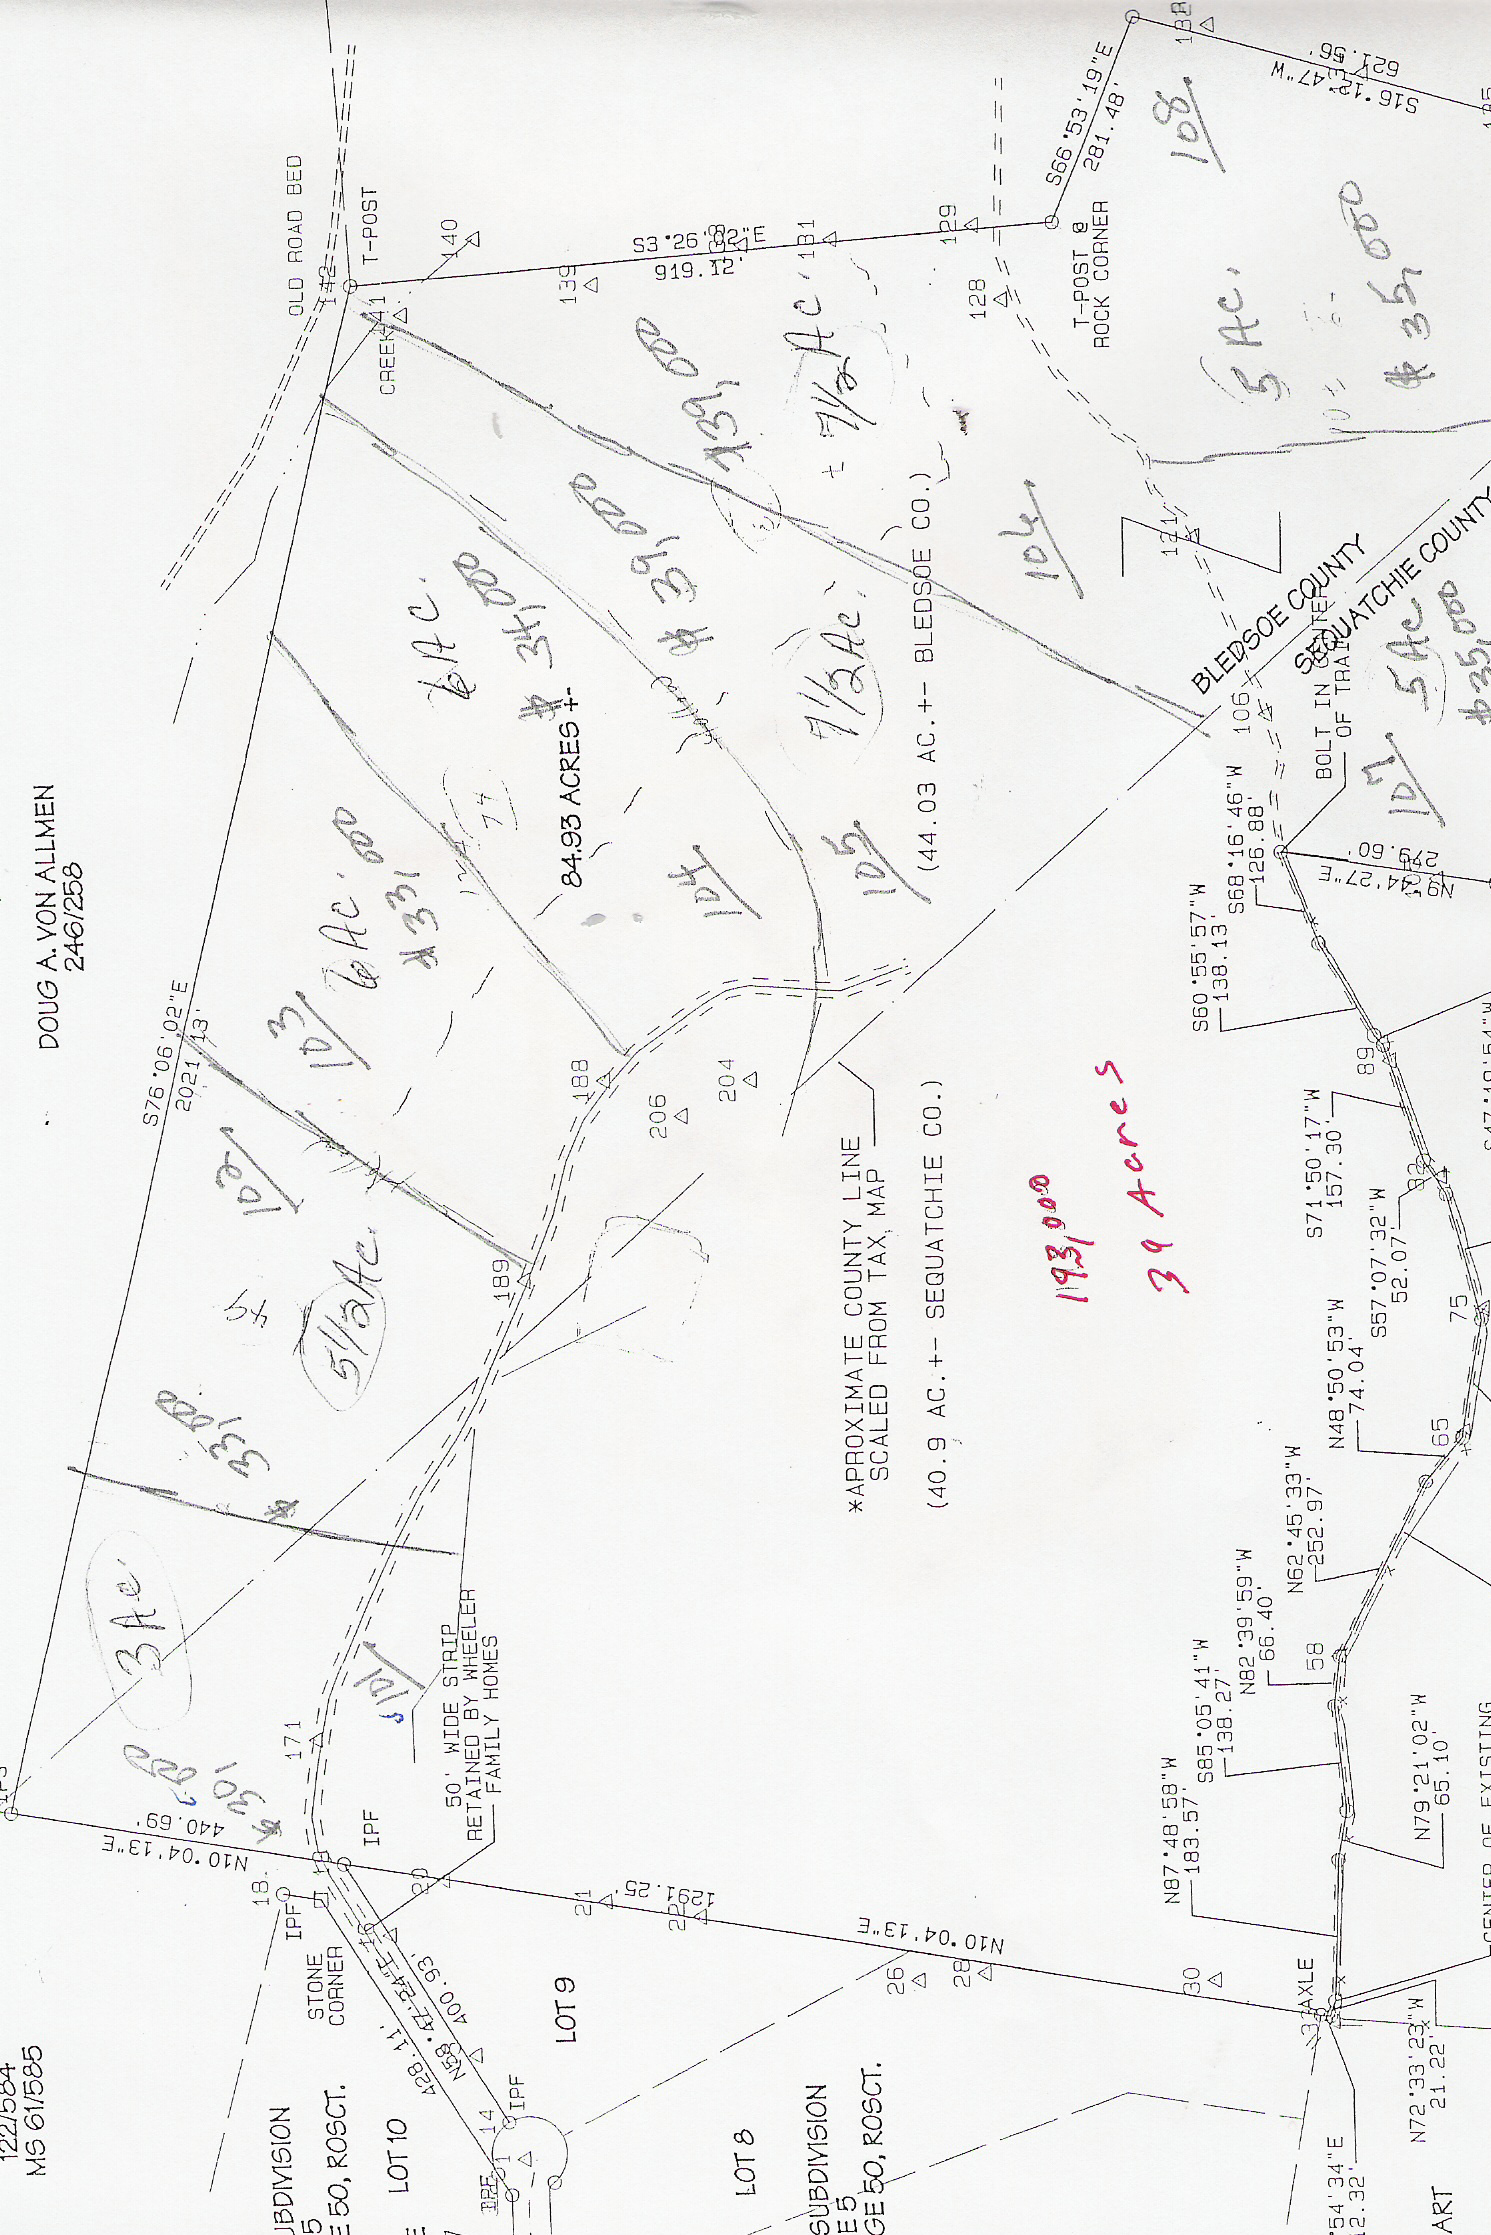 DOUG A. VON ALLMEN
246/258
122/584
MS 61/585
OLD ROAD BED
T-POST
142
141
CREEK
140
139
S3°26'02"E
919.12'
131
129
128
T-POST @
ROCK CORNER
S66°53'19"E
281.48'
132
S16°12'47"W
621.56'
108
5 AC.
$35,000
± 7 1/2 AC.
$39,000
106
121
(44.03 AC.+- BLEDSOE CO.)
BLEDSOE COUNTY
SEQUATCHIE COUNTY
7 1/2 AC.
$39,000
105
6 AC.
$34,000
84.93 ACRES +-
104
74
124
6 AC.
$33,000
103
S76°06'02"E
2021.13'
102
5 1/2 AC.
$33,000
3 AC.
$30,000
101
188
206
204
189
171
*APROXIMATE COUNTY LINE
SCALED FROM TAX MAP
(40.9 AC.+- SEQUATCHIE CO.)
193,000
39 Acres
107
5 AC
$35,000
106
BOLT IN CENTER
OF TRAIL
S68°16'46"W
126.88'
N9°44'27"E
279.60'
S60°55'57"W
138.13'
89
S71°50'17"W
157.30'
S57°07'32"W
52.07'
75
N48°50'53"W
74.04'
65
N62°45'33"W
252.97'
N82°39'59"W
66.40'
58
S85°05'41"W
138.27'
N79°21'02"W
65.10'
N87°48'58"W
183.57'
CENTER OF EXISTING
50' WIDE STRIP
RETAINED BY WHEELER
FAMILY HOMES
N10°04'13"E
440.69'
IPF
18
IPF
STONE
CORNER
20
21
22
1291.25'
N10°04'13"E
26
28
30
AXLE
N72°33'23"W
21.22'
°54'34"E
12.32'
400.93'
428.11'
14
IPF
IPF
LOT 9
LOT 10
LOT 8
UBDIVISION
E 50, ROSCT.
SUBDIVISION
E 5
GE 50, ROSCT.
ART